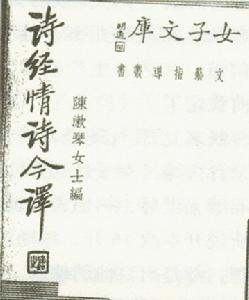 庫文子女
書叢導指藝文
詩经情诗今譯
陳漱琴女士編